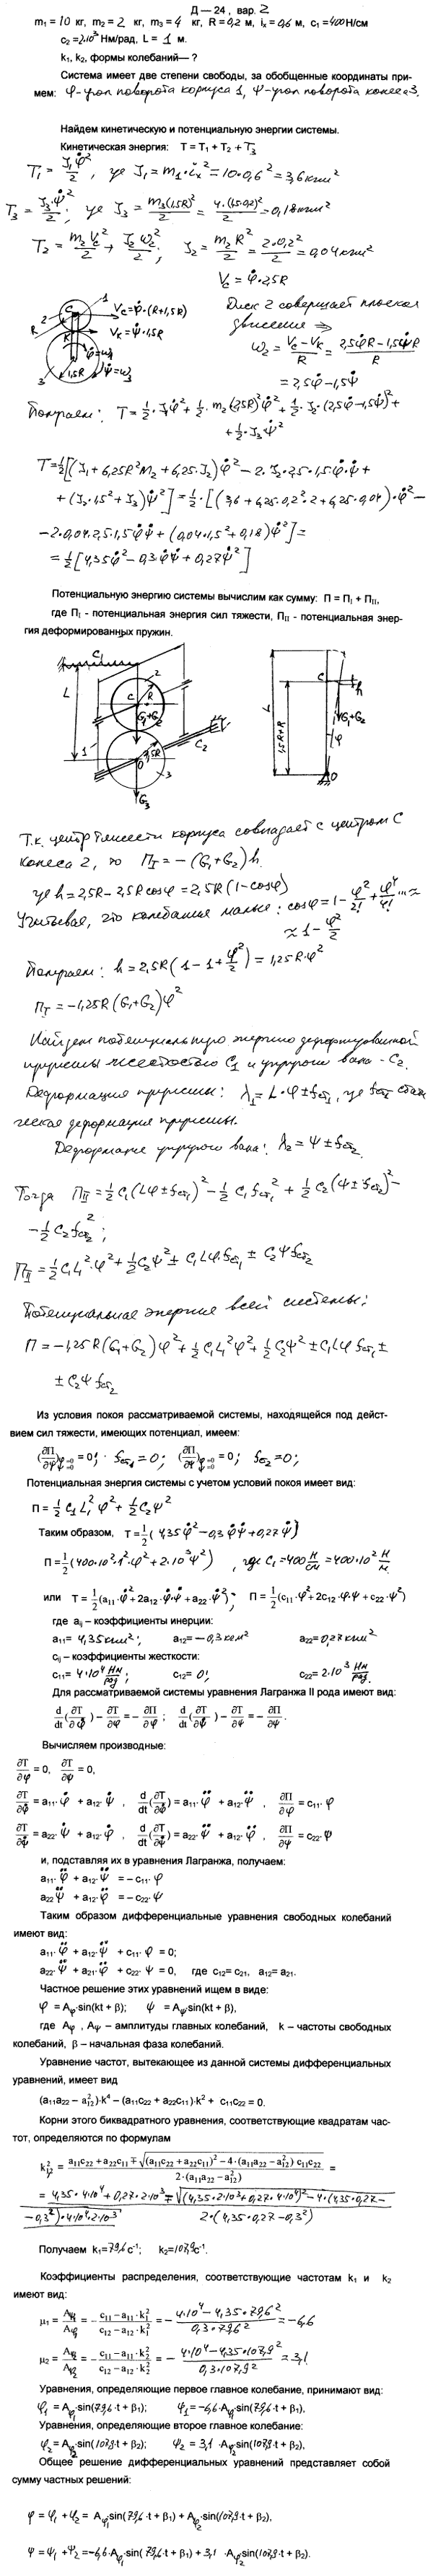 Д – 24 , вар. 2
m₁ = 10 кг, m₂ = 2 кг, m₃ = 4 кг, R = 0,2 м, iₓ = 0,6 м, c₁ = 400 Н/см
c₂ = 2·10³ Нм/рад, L = 1 м.
k₁, k₂, формы колебаний— ?
Система имеет две степени свободы, за обобщенные координаты при-
мем: φ - угол поворота корпуса 1, ψ - угол поворота колеса 3.
Найдем кинетическую и потенциальную энергии системы.
Кинетическая энергия: T = T₁ + T₂ + T₃
T₁ = J₁φ̇²/2, где J₁ = m₁·iₓ² = 10·0,6² = 3,6 кгм²
T₃ = J₃·ψ̇²/2; где J₃ = m₃(1,5R)²/2 = 4·(1,5·0,2)²/2 = 0,18 кгм²
T₂ = m₂V_C²/2 + J₂ω₂²/2; J₂ = m₂R²/2 = 2·0,2²/2 = 0,04 кгм²
V_C = φ̇·2,5R
1
C
2
R
K
3
1,5R
V_C = φ̇·(R+1,5R)
V_K = ψ̇·1,5R
φ̇ = ω₁
ψ̇ = ω₃
Диск 2 совершает плоское
движение ⇒
ω₂ = (V_C − V_K)/R = (2,5φ̇R − 1,5ψ̇R)/R
= 2,5φ̇ − 1,5ψ̇
Получаем: T = 1/2·J₁φ̇² + 1/2·m₂(2,5R)²φ̇² + 1/2·J₂·(2,5φ̇ − 1,5ψ̇)² +
+ 1/2·J₃ψ̇²
T = 1/2[(J₁ + 6,25R²m₂ + 6,25·J₂)φ̇² − 2·J₂·2,5·1,5·φ̇·ψ̇ +
+ (J₂·1,5² + J₃)ψ̇²] = 1/2·[(3,6 + 6,25·0,2²·2 + 6,25·0,04)·φ̇² −
− 2·0,04·2,5·1,5φ̇ψ̇ + (0,04·1,5² + 0,18)ψ̇²] =
= 1/2[4,35φ̇² − 0,3φ̇ψ̇ + 0,27ψ̇²]
Потенциальную энергию системы вычислим как сумму: П = П_I + П_II,
где П_I - потенциальная энергия сил тяжести, П_II - потенциальная энер-
гия деформированных пружин.
C₁
L
2
C
R
G₁+G₂
1
C₂
O
1,5R
3
G₃
L
1,5R+R
C
h
G₁+G₂
φ
O
Т.к. центр тяжести корпуса совпадает с центром C
колеса 2, то П_I = −(G₁+G₂)h.
где h = 2,5R − 2,5R cosφ = 2,5R(1 − cosφ)
Учитывая, что колебания малые: cosφ = 1 − φ²/2! + φ⁴/4! ... ≈
≈ 1 − φ²/2
Получаем: h = 2,5R(1 − 1 + φ²/2) = 1,25R·φ²
П_I = −1,25R(G₁+G₂)φ²
Найдем потенциальную энергию деформированной
пружины жесткостью C₁ и упругого вала - C₂.
Деформация пружины: λ₁ = L·φ ± f_ст₁, где f_ст стати-
ческая деформация пружины.
Деформация упругого вала: λ₂ = ψ ± f_ст₂
Тогда П_II = 1/2 C₁(Lφ ± f_ст₁)² − 1/2 C₁f_ст₁² + 1/2 C₂(ψ ± f_ст₂)² −
− 1/2 C₂f_ст₂²;
П_II = 1/2 C₁L²·φ² + 1/2 C₂ψ² ± C₁Lφ·f_ст₁ ± C₂ψf_ст₂
Потенциальная энергия всей системы:
П = −1,25R(G₁+G₂)φ² + 1/2 C₁L²φ² + 1/2 C₂ψ² ± C₁Lφ f_ст₁ ±
± C₂ψ f_ст₂
Из условия покоя рассматриваемой системы, находящейся под дейст-
вием сил тяжести, имеющих потенциал, имеем:
(∂П/∂φ)φ=0 ψ=0 = 0; f_ст₁ = 0; (∂П/∂ψ)φ=0 ψ=0 = 0; f_ст₂ = 0;
Потенциальная энергия системы с учетом условий покоя имеет вид:
П = 1/2 C₁L₁²φ² + 1/2 C₂ψ²
Таким образом, T = 1/2(4,35φ̇² − 0,3φ̇ψ̇ + 0,27ψ̇²)
П = 1/2(400·10²·1²·φ² + 2·10³ψ²), где C₁ = 400 Н/см = 400·10² Н/м
или T = 1/2(a₁₁·φ̇² + 2a₁₂·φ̇·ψ̇ + a₂₂·ψ̇²); П = 1/2(c₁₁·φ² + 2c₁₂·φ·ψ + c₂₂·ψ²)
где aᵢⱼ – коэффициенты инерции:
a₁₁ = 4,35 кгм²; a₁₂ = −0,3 кгм² a₂₂ = 0,27 кгм²
cᵢⱼ – коэффициенты жесткости:
c₁₁ = 4·10⁴ Нм/рад; c₁₂ = 0; c₂₂ = 2·10³ Нм/рад.
Для рассматриваемой системы уравнения Лагранжа II рода имеют вид:
d/dt(∂T/∂φ̇) − ∂T/∂φ = −∂П/∂φ; d/dt(∂T/∂ψ̇) − ∂T/∂ψ = −∂П/∂ψ.
Вычисляем производные:
∂T/∂φ = 0, ∂T/∂ψ = 0,
∂T/∂φ̇ = a₁₁·φ̇ + a₁₂·ψ̇ , d/dt(∂T/∂φ̇) = a₁₁·φ̈ + a₁₂·ψ̈ , ∂П/∂φ = c₁₁·φ
∂T/∂ψ̇ = a₂₂·ψ̇ + a₁₂·φ̇ , d/dt(∂T/∂ψ̇) = a₂₂·ψ̈ + a₁₂·φ̈ , ∂П/∂ψ = c₂₂·ψ
и, подставляя их в уравнения Лагранжа, получаем:
a₁₁·φ̈ + a₁₂·ψ̈ = −c₁₁·φ
a₂₂ψ̈ + a₁₂·φ̈ = −c₂₂·ψ
Таким образом дифференциальные уравнения свободных колебаний
имеют вид:
a₁₁·φ̈ + a₁₂·ψ̈ + c₁₁·φ = 0;
a₂₂·ψ̈ + a₂₁·φ̈ + c₂₂·ψ = 0, где c₁₂ = c₂₁, a₁₂ = a₂₁.
Частное решение этих уравнений ищем в виде:
φ = A_φ sin(kt + β); ψ = A_ψ sin(kt + β),
где A_φ , A_ψ – амплитуды главных колебаний, k – частоты свободных
колебаний, β – начальная фаза колебаний.
Уравнение частот, вытекающее из данной системы дифференциальных
уравнений, имеет вид
(a₁₁a₂₂ − a₁₂²)·k⁴ − (a₁₁c₂₂ + a₂₂c₁₁)·k² + c₁₁c₂₂ = 0.
Корни этого биквадратного уравнения, соответствующие квадратам час-
тот, определяются по формулам
k²₁,₂ = (a₁₁c₂₂ + a₂₂c₁₁ ∓ √((a₁₁c₂₂ + a₂₂c₁₁)² − 4·(a₁₁a₂₂ − a₁₂²) c₁₁c₂₂)) / (2·(a₁₁a₂₂ − a₁₂²)) =
= 4,35·4·10⁴ + 0,27·2·10³ ∓ √((4,35·2·10³ + 0,27·4·10⁴)² − 4·(4,35·0,27 −
− 0,3²)·4·10⁴·2·10³ / 2·(4,35·0,27 − 0,3²)
Получаем k₁ = 79,6 с⁻¹; k₂ = 107,9 с⁻¹.
Коэффициенты распределения, соответствующие частотам k₁ и k₂
имеют вид:
μ₁ = A_ψ₁/A_φ₁ = −(c₁₁ − a₁₁·k₁²)/(c₁₂ − a₁₂·k₁²) = −(4·10⁴ − 4,35·79,6²)/(0,3·79,6²) = −6,6
μ₂ = A_ψ₂/A_φ₂ = −(c₁₁ − a₁₁·k₂²)/(c₁₂ − a₁₂·k₂²) = −(4·10⁴ − 4,35·107,9²)/(0,3·107,9²) = 3,1
Уравнения, определяющие первое главное колебание, принимают вид:
φ₁ = A_φ₁·sin(79,6·t + β₁); ψ₁ = −6,6·A_φ₁ sin(79,6·t + β₁),
Уравнения, определяющие второе главное колебание:
φ₂ = A_φ₂·sin(107,9·t + β₂); ψ₂ = 3,1·A_φ₂ sin(107,9·t + β₂),
Общее решение дифференциальных уравнений представляет собой
сумму частных решений:
φ = φ₁ + φ₂ = A_φ₁ sin(79,6·t + β₁) + A_φ₂ sin(107,9·t + β₂),
ψ = ψ₁ + ψ₂ = −6,6·A_φ₁ sin(79,6·t + β₁) + 3,1·A_φ₂ sin(107,9·t + β₂).